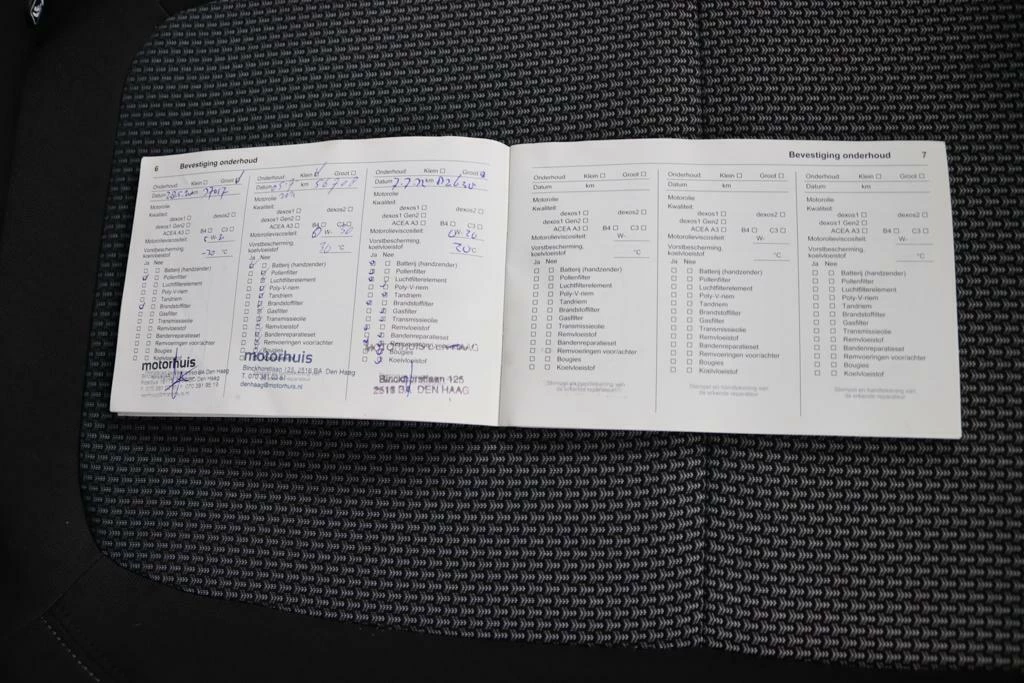 6 Bevestiging onderhoud
Onderhoud: Klein Groot
Datum km
Motorolie
Kwaliteit:
dexos1 dexos2
dexos1 Gen2
ACEA A3 B4 C3
Motorolieviscositeit: W-
Vorstbescherming,
koelvloeistof -30 °C
Ja Nee
Batterij (handzender)
Pollenfilter
Luchtfilterelement
Poly-V-riem
Tandriem
Brandstoffilter
Gasfilter
Transmissieolie
Remvloeistof
Bandenreparatieset
Remvoeringen voor/achter
Bougies
motorhuis
Onderhoud: Klein Groot
Datum km
Motorolie
Kwaliteit:
dexos1 dexos2
dexos1 Gen2
ACEA A3 B4 C3
Motorolieviscositeit: W-
Vorstbescherming,
koelvloeistof °C
Ja Nee
Batterij (handzender)
Pollenfilter
Luchtfilterelement
Poly-V-riem
Tandriem
Brandstoffilter
Gasfilter
Transmissieolie
Remvloeistof
Bandenreparatieset
Remvoeringen voor/achter
Bougies
motorhuis
Binckhorstlaan 125, 2516 BA Den Haag
denhaag@motorhuis.nl
Onderhoud: Klein Groot
Datum km
Motorolie
Kwaliteit:
dexos1 dexos2
dexos1 Gen2
ACEA A3 B4 C3
Motorolieviscositeit:
Vorstbescherming,
koelvloeistof
Ja Nee
Batterij (handzender)
Pollenfilter
Luchtfilterelement
Poly-V-riem
Tandriem
Brandstoffilter
Gasfilter
Transmissieolie
Remvloeistof
Bandenreparatieset
Bougies
Koelvloeistof
Binckhorstlaan 125
2516 BA DEN HAAG
Bevestiging onderhoud 7
Onderhoud: Klein Groot
Datum km
Motorolie
Kwaliteit:
dexos1 dexos2
dexos1 Gen2
ACEA A3 B4 C3
Motorolieviscositeit: W-
Vorstbescherming,
koelvloeistof °C
Ja Nee
Batterij (handzender)
Pollenfilter
Luchtfilterelement
Poly-V-riem
Tandriem
Brandstoffilter
Gasfilter
Transmissieolie
Remvloeistof
Bandenreparatieset
Remvoeringen voor/achter
Bougies
Koelvloeistof
Stempel en handtekening van
de erkende reparateur
Onderhoud: Klein Groot
Datum km
Motorolie
Kwaliteit:
dexos1 dexos2
dexos1 Gen2
ACEA A3 B4 C3
Motorolieviscositeit: W-
Vorstbescherming,
koelvloeistof °C
Ja Nee
Batterij (handzender)
Pollenfilter
Luchtfilterelement
Poly-V-riem
Tandriem
Brandstoffilter
Gasfilter
Transmissieolie
Remvloeistof
Bandenreparatieset
Remvoeringen voor/achter
Bougies
Koelvloeistof
Stempel en handtekening van
de erkende reparateur
Onderhoud: Klein Groot
Datum km
Motorolie
Kwaliteit:
dexos1 dexos2
dexos1 Gen2
ACEA A3 B4 C3
Motorolieviscositeit: W-
Vorstbescherming,
koelvloeistof °C
Ja Nee
Batterij (handzender)
Pollenfilter
Luchtfilterelement
Poly-V-riem
Tandriem
Brandstoffilter
Gasfilter
Transmissieolie
Remvloeistof
Bandenreparatieset
Remvoeringen voor/achter
Bougies
Koelvloeistof
Stempel en handtekening van
de erkende reparateur